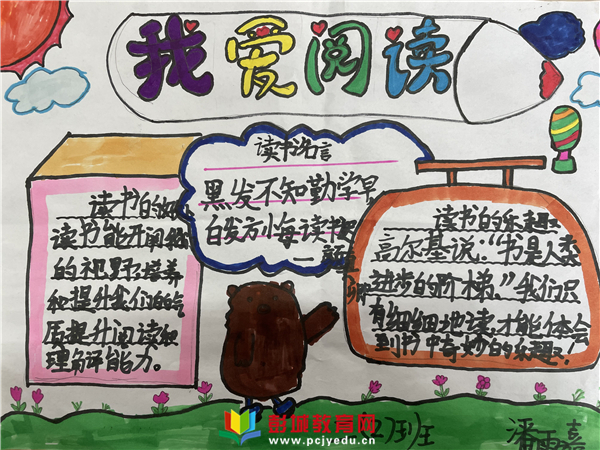 我爱阅读
读书名言
黑发不知勤学早
白发方小悔读书
读书的好
读书能开阔
的视野培养
和提升我们的气
质提升阅读和
理解能力。
读书的乐趣
高尔基说:“书是人类
进步的阶梯,”我们只
有细细地读才能体会
到书中奇妙的乐趣!
班
彭城教育网
www.pcjyedu.cn